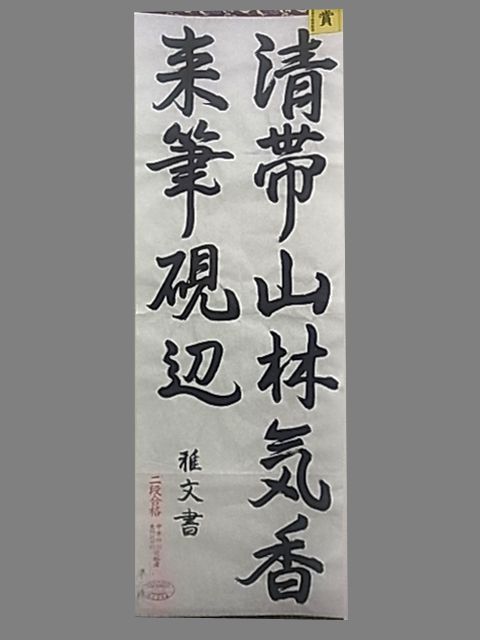 清帯山林気香
来筆硯辺
雅文書
二段合格
賞